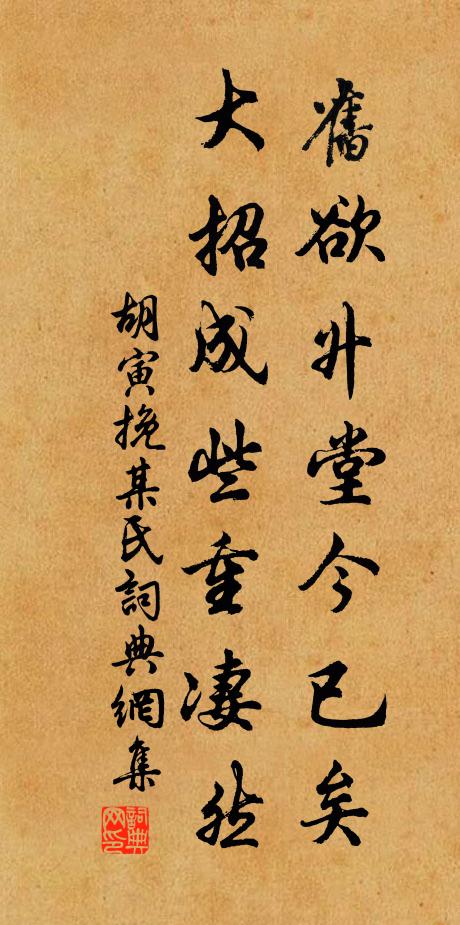 舊欲升堂今已矣
大招成些重凄然
胡寅挽某氏詞典網集
詞典網印